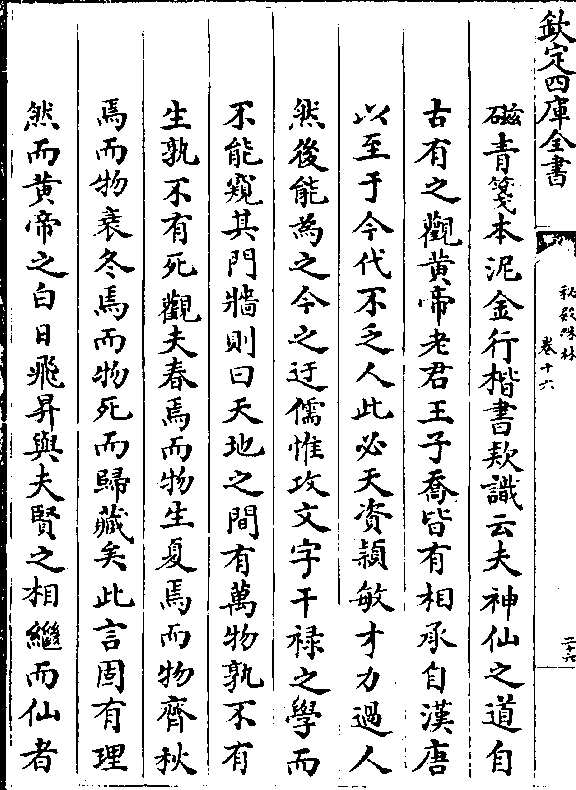 欽定四庫全書
秘殿珠林
卷十六
二十六
磁青箋本泥金行楷書款識云夫神仙之道自
古有之觀黃帝老君王子喬皆有相承自漢唐
以至于今代不乏人此必天資頴敏才力過人
然後能為之今之迂儒惟攻文字干祿之學而
不能窺其門牆則曰天地之間有萬物孰不有
生孰不有死觀夫春焉而物生夏焉而物齊秋
焉而物衰冬焉而物死而歸藏矣此言固有理
然而黃帝之白日飛昇與夫賢之相繼而仙者